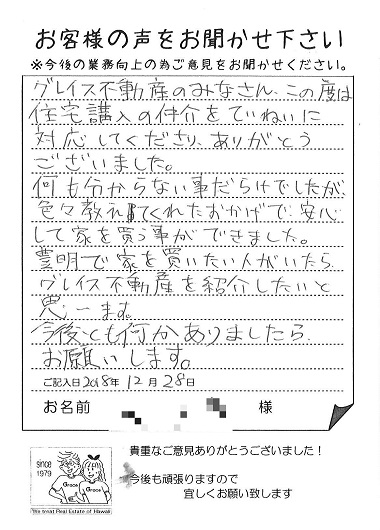 お客様の声をお聞かせ下さい
※今後の業務向上の為ご意見をお聞かせください。
グレイス不動産のみなさん、この度は
住宅購入の仲介をていねいに
対応してくださり、ありがとう
ございました。
何も分からない事だらけでしたが、
色々教えてくれたおかげで、安心
して家を買う事ができました。
豊明で家を買いたい人がいたら、
グレイス不動産を紹介したいと
思います。
今後とも何かありましたら、
お願いします。
ご記入日2018年12月28日
お名前 様
貴重なご意見ありがとうございました！
今後も頑張りますので
宜しくお願い致します
since
1979
Grace
Grace
"We treat Real Estate of Hawaii"